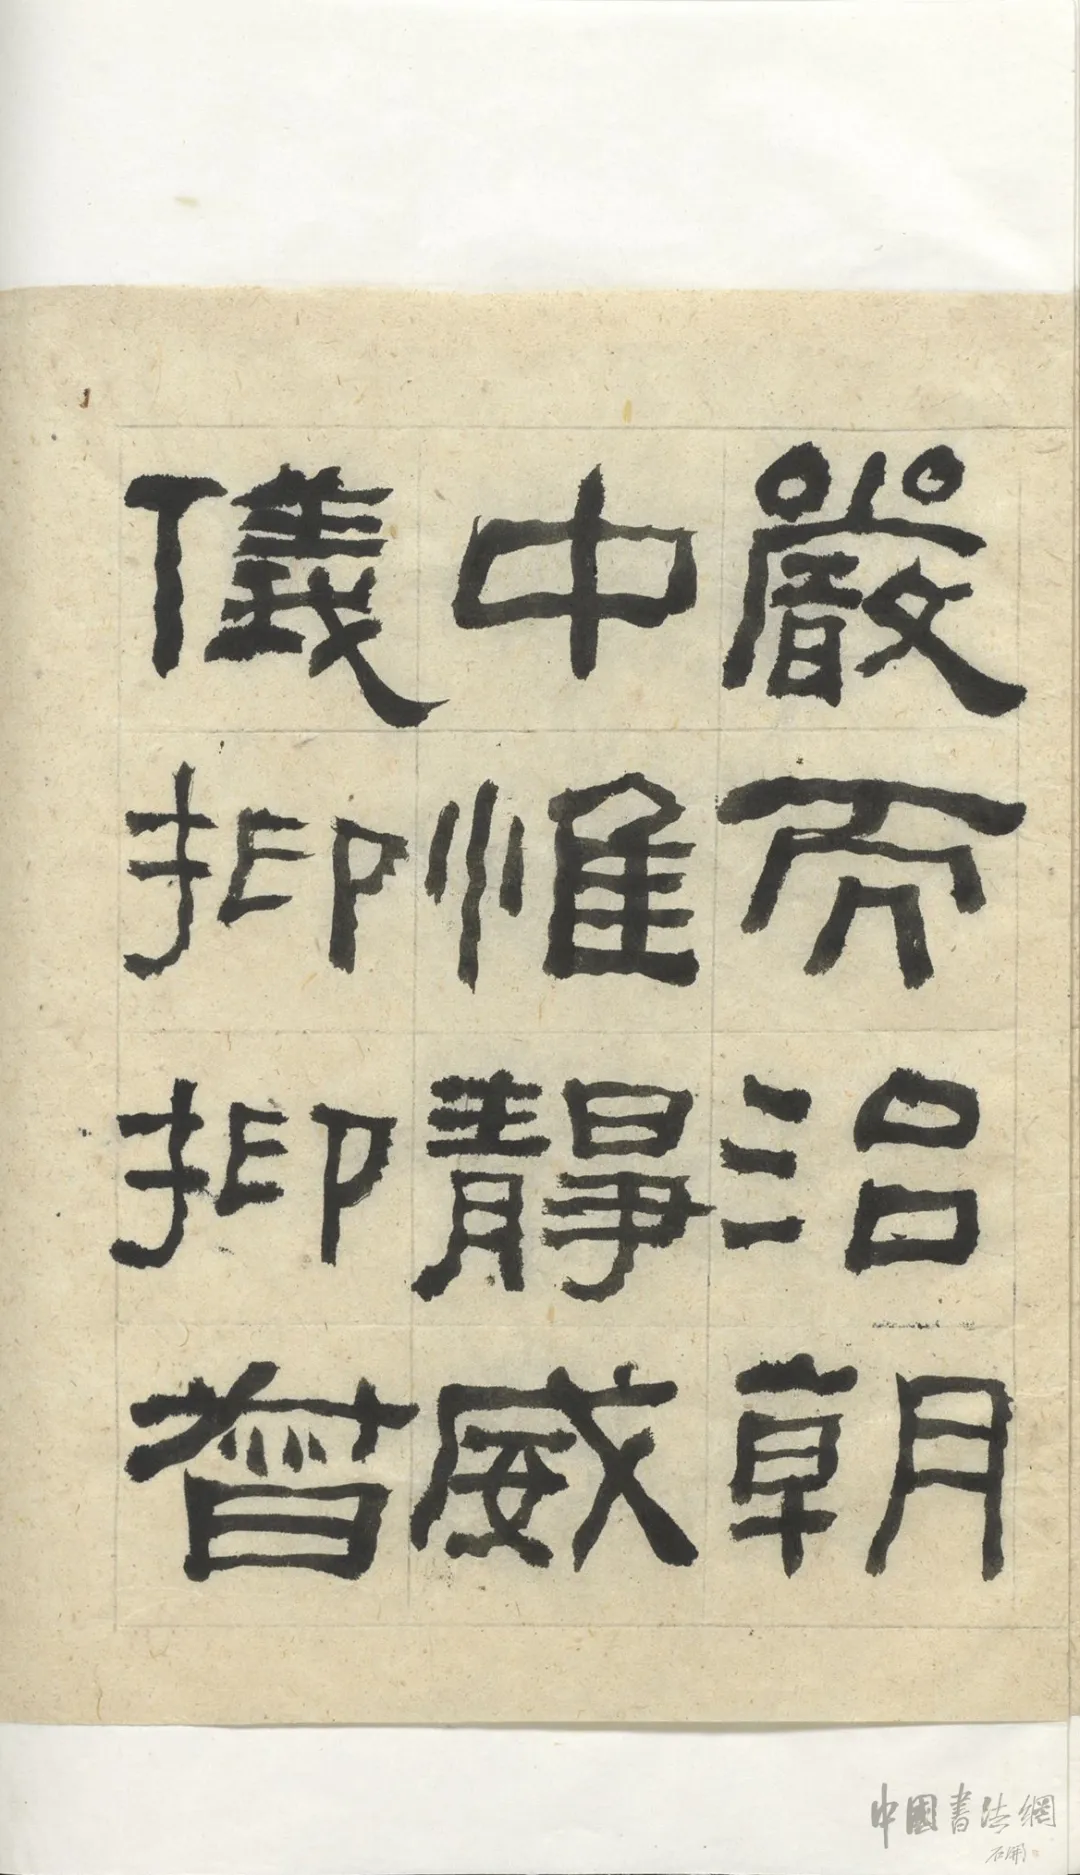 嚴而治朝
中惟靜威
儀抑抑督
中國書法網
石開